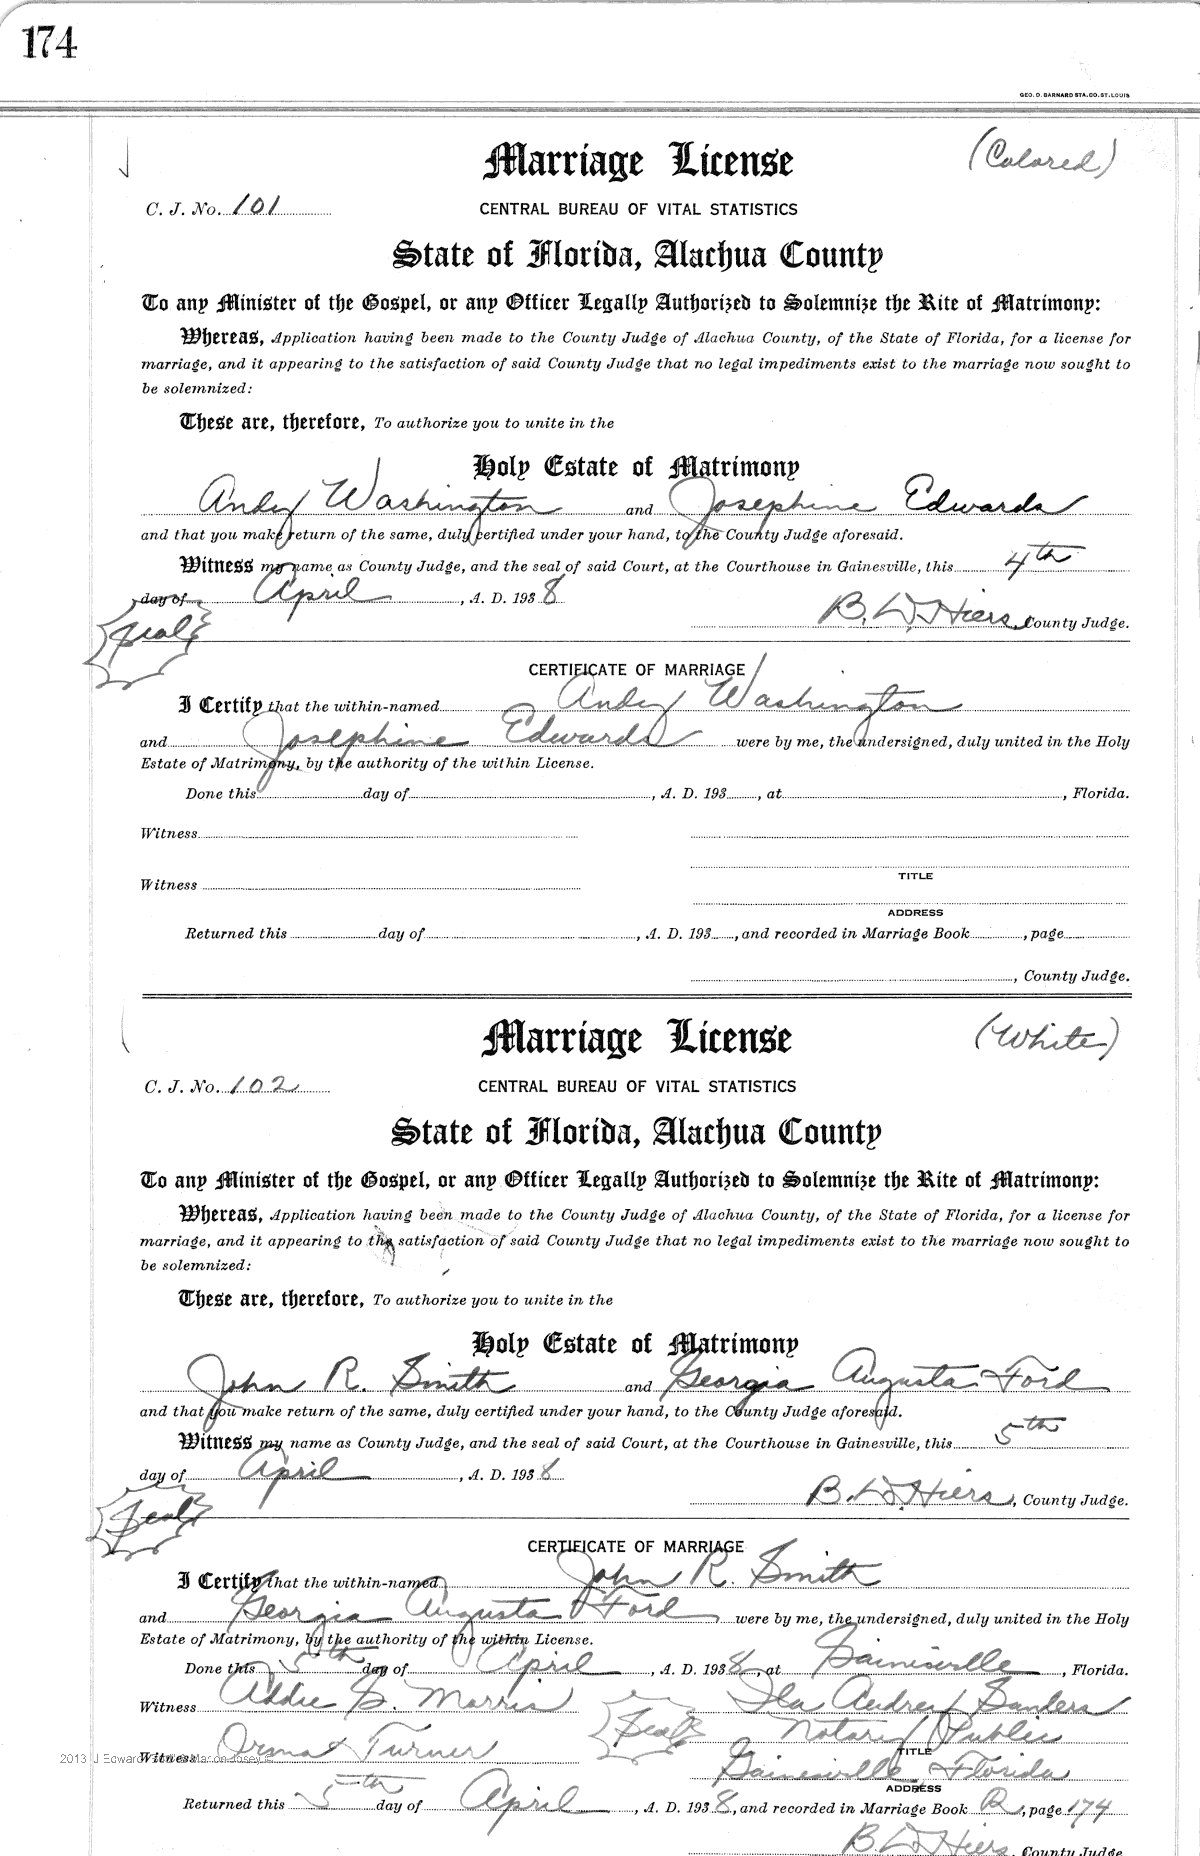 174
GEO. D. BARNARD STA. CO. ST. LOUIS
Marriage License (Colored)
C. J. No. 101 CENTRAL BUREAU OF VITAL STATISTICS
State of Florida, Alachua County
To any Minister of the Gospel, or any Officer Legally Authorized to Solemnize the Rite of Matrimony:
Whereas, Application having been made to the County Judge of Alachua County, of the State of Florida, for a license for
marriage, and it appearing to the satisfaction of said County Judge that no legal impediments exist to the marriage now sought to
be solemnized:
These are, therefore, To authorize you to unite in the
Holy Estate of Matrimony
Andy Washington and Josephine Edwards
and that you make return of the same, duly certified under your hand, to the County Judge aforesaid.
Witness my name as County Judge, and the seal of said Court, at the Courthouse in Gainesville, this 4th
day of April, A. D. 1938
Seal B. D. Hiers, County Judge.
CERTIFICATE OF MARRIAGE
I Certify that the within-named Andy Washington
and Josephine Edwards were by me, the undersigned, duly united in the Holy
Estate of Matrimony, by the authority of the within License.
Done this day of , A. D. 193 , at , Florida.
Witness
TITLE
Witness
ADDRESS
Returned this day of , A. D. 193 , and recorded in Marriage Book , page
, County Judge.
Marriage License (White)
C. J. No. 102 CENTRAL BUREAU OF VITAL STATISTICS
State of Florida, Alachua County
To any Minister of the Gospel, or any Officer Legally Authorized to Solemnize the Rite of Matrimony:
Whereas, Application having been made to the County Judge of Alachua County, of the State of Florida, for a license for
marriage, and it appearing to the satisfaction of said County Judge that no legal impediments exist to the marriage now sought to
be solemnized:
These are, therefore, To authorize you to unite in the
Holy Estate of Matrimony
John R. Smith and Georgia Augusta Ford
and that you make return of the same, duly certified under your hand, to the County Judge aforesaid.
Witness my name as County Judge, and the seal of said Court, at the Courthouse in Gainesville, this 5th
day of April, A. D. 1938
Seal B. D. Hiers, County Judge.
CERTIFICATE OF MARRIAGE
I Certify that the within-named John R. Smith
and Georgia Augusta Ford were by me, the undersigned, duly united in the Holy
Estate of Matrimony, by the authority of the within License.
Done this 5th day of April, A. D. 1938, at Gainesville, Florida.
Witness Addie S. Morris Seal Ila Audrey Sanders
Notary Public
Witness Orma Turner TITLE
Gainesville, Florida
ADDRESS
Returned this 5th day of April, A. D. 1938, and recorded in Marriage Book R, page 174
B. D. Hiers, County Judge